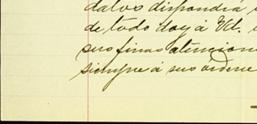 datos dispondrá
de todo doy á Vd.
sus finas atencion
siempre á sus ordene